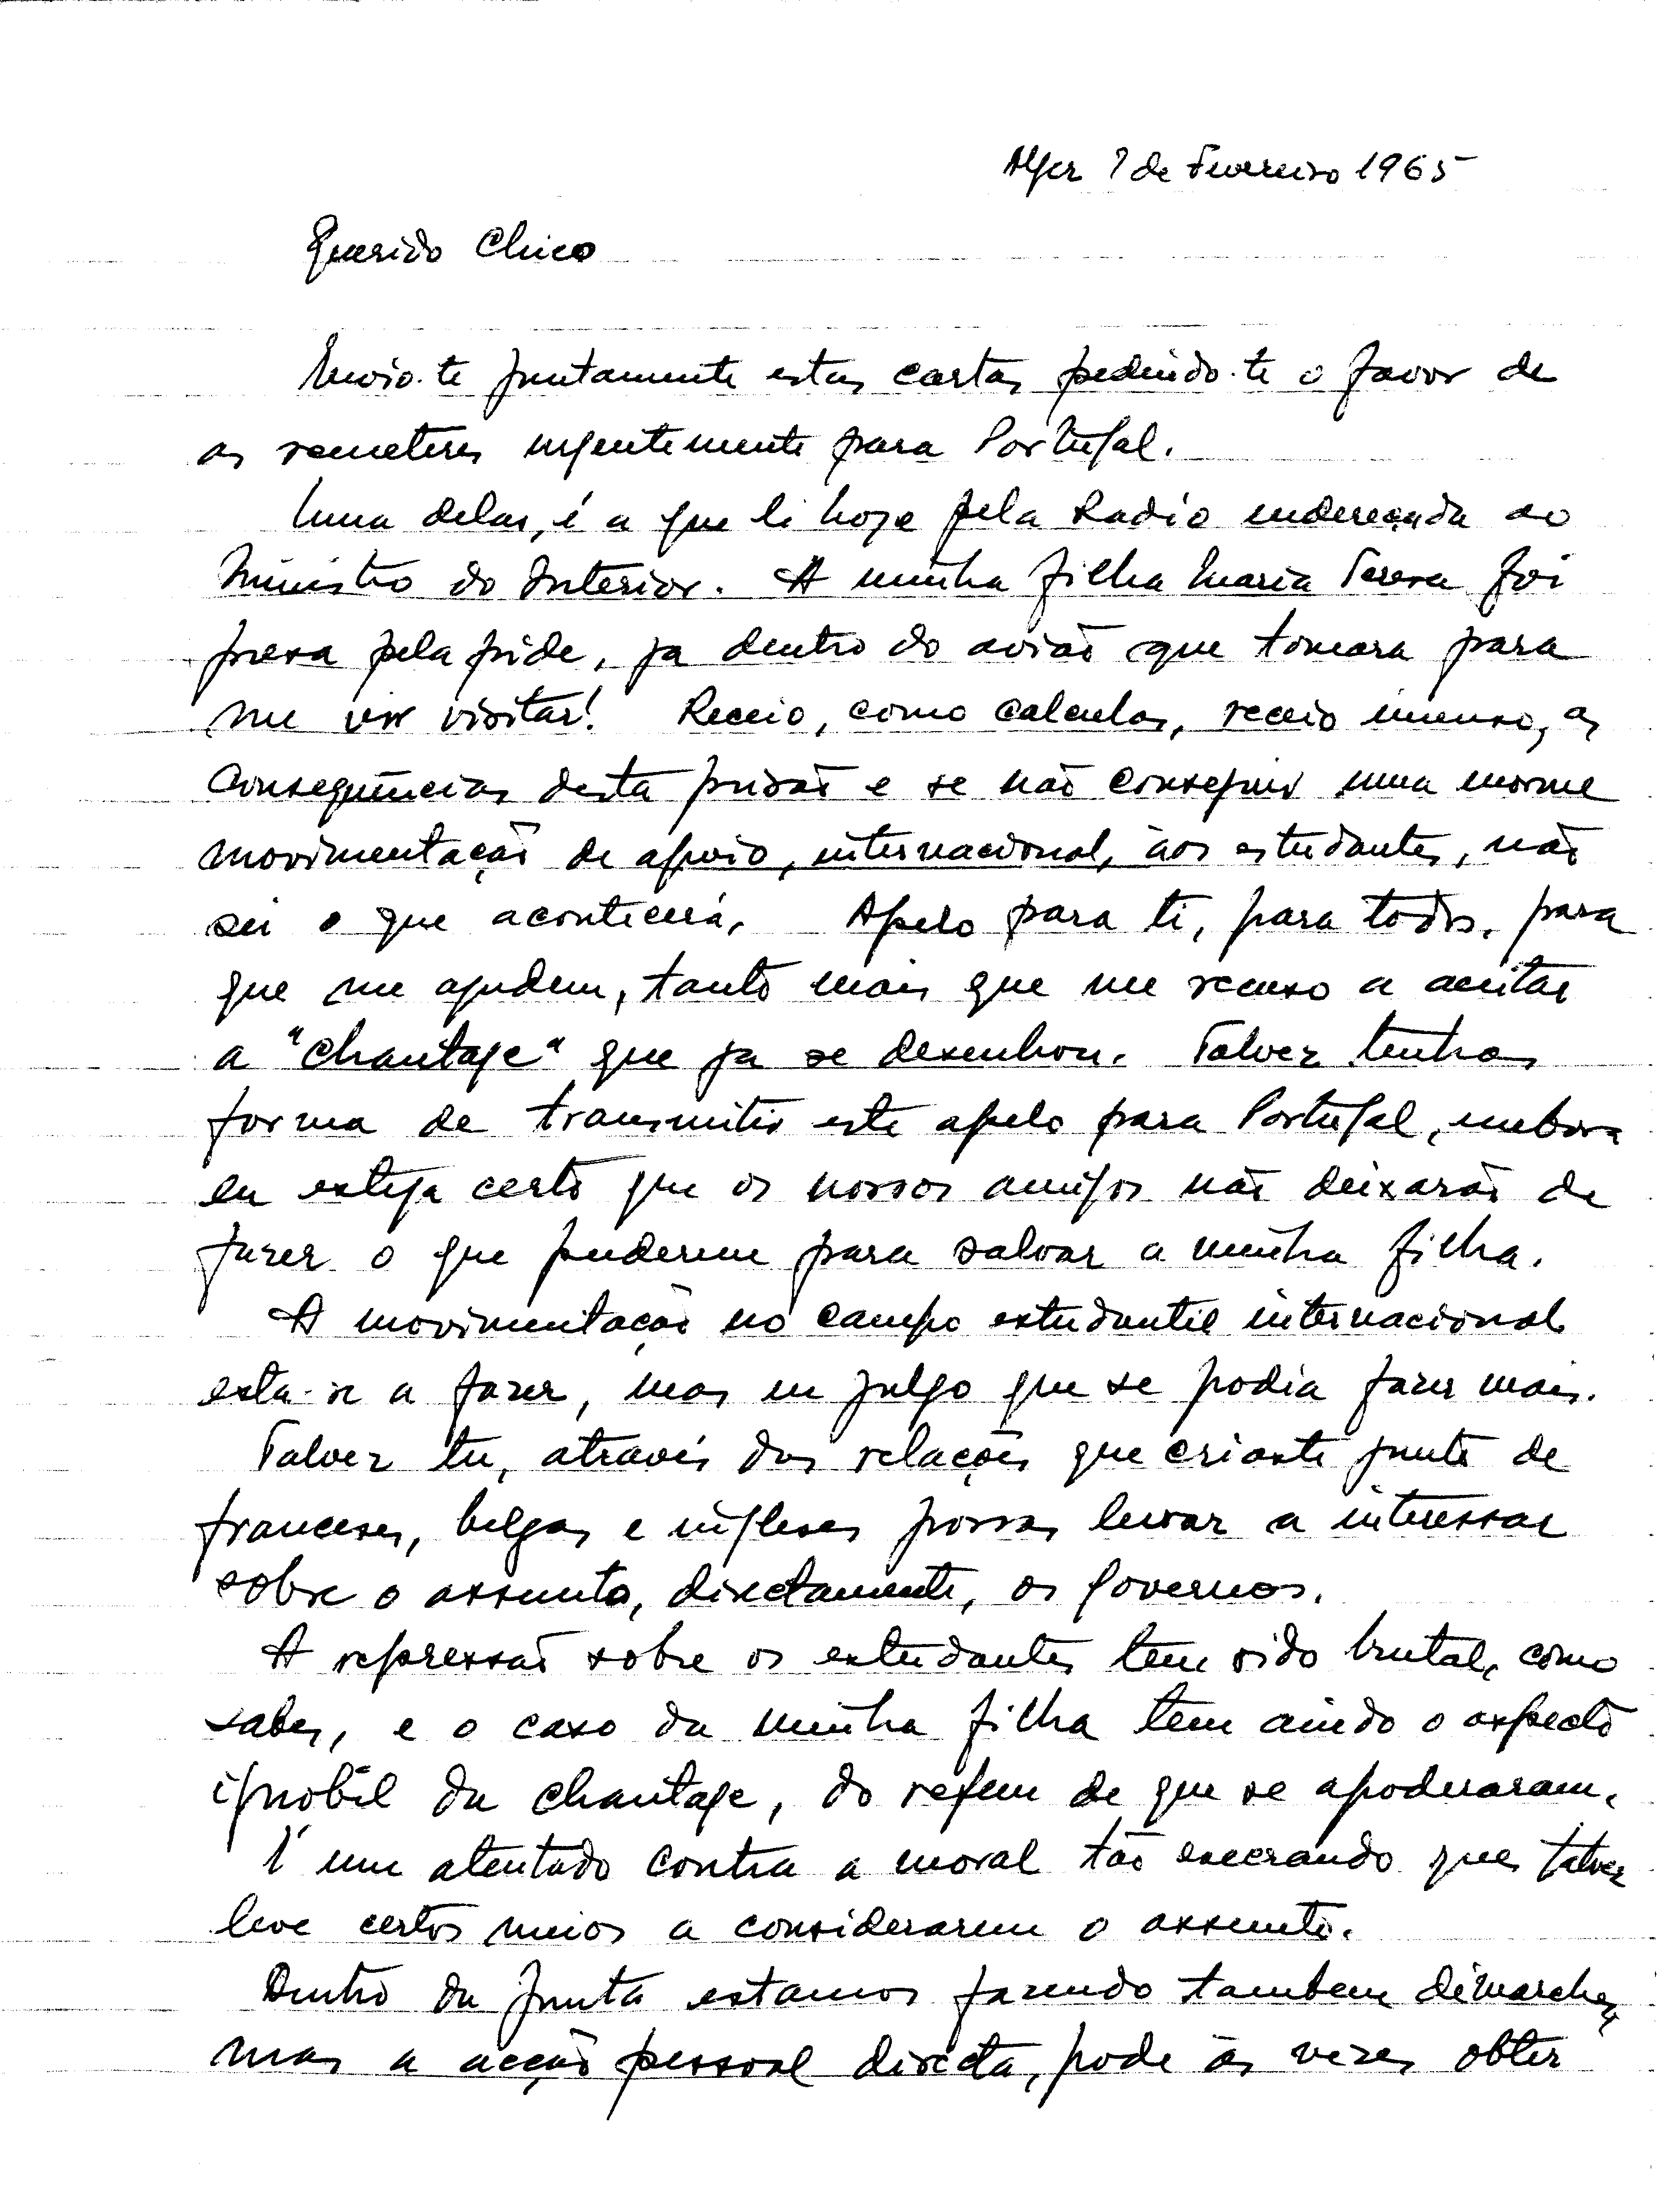 Alger 7 de Fevereiro 1965
Querido Chico
Envio-te juntamente estas cartas pedindo-te o favor de
as remeteres urgentemente para Portugal.
Uma delas, é a que li hoje pela Radio endereçada ao
Ministro do Interior. A minha filha Maria Teresa foi
presa pela pide, ja dentro do avião que tomara para
me vir visitar! Receio, como calculas, receio imenso, as
consequências desta prisão e se não conseguir uma enorme
movimentação de apoio, internacional, aos estudantes, não
sei o que acontecerá. Apelo para ti, para todos, para
que me ajudem, tanto mais que me recuso a aceitar
a "chantage" que ja se desenhou. Talvez tenhas
forma de transmitir este apelo para Portugal, embora
eu esteja certo que os nossos amigos não deixarão de
fazer o que puderem para salvar a minha filha.
A movimentação no campo estudantil internacional
esta-se a fazer, mas eu julgo que se podia fazer mais.
Talvez tu, através das relações que criaste junto de
franceses, belgas e ingleses possas levar a interessar
sobre o assunto, directamente, os governos.
A repressão sobre os estudantes tem sido brutal, como
sabes, e o caso da minha filha tem ainda o aspecto
ignóbil da chantage, do refem de que se apoderaram.
É um atentado contra a moral tão execrando que talvez
leve certos meios a considerarem o assunto.
Dentro da Junta estamos fazendo tambem démarches,
mas a acção pessoal directa, pode às vezes obter